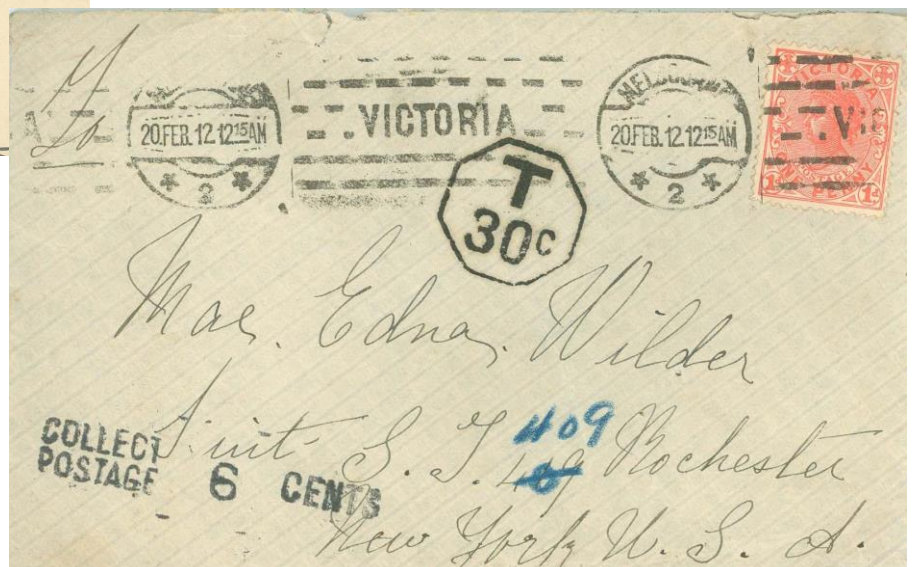 20.FEB.12.12 15AM
2
VICTORIA
MELBOURNE
20.FEB.12.12 15AM
2
VICTORIA
ONE PENNY
1d
T
30c
Mae. Edna. Wilder
S. T. 409 Rochester
New York U. S. A.
COLLECT
POSTAGE 6 CENTS